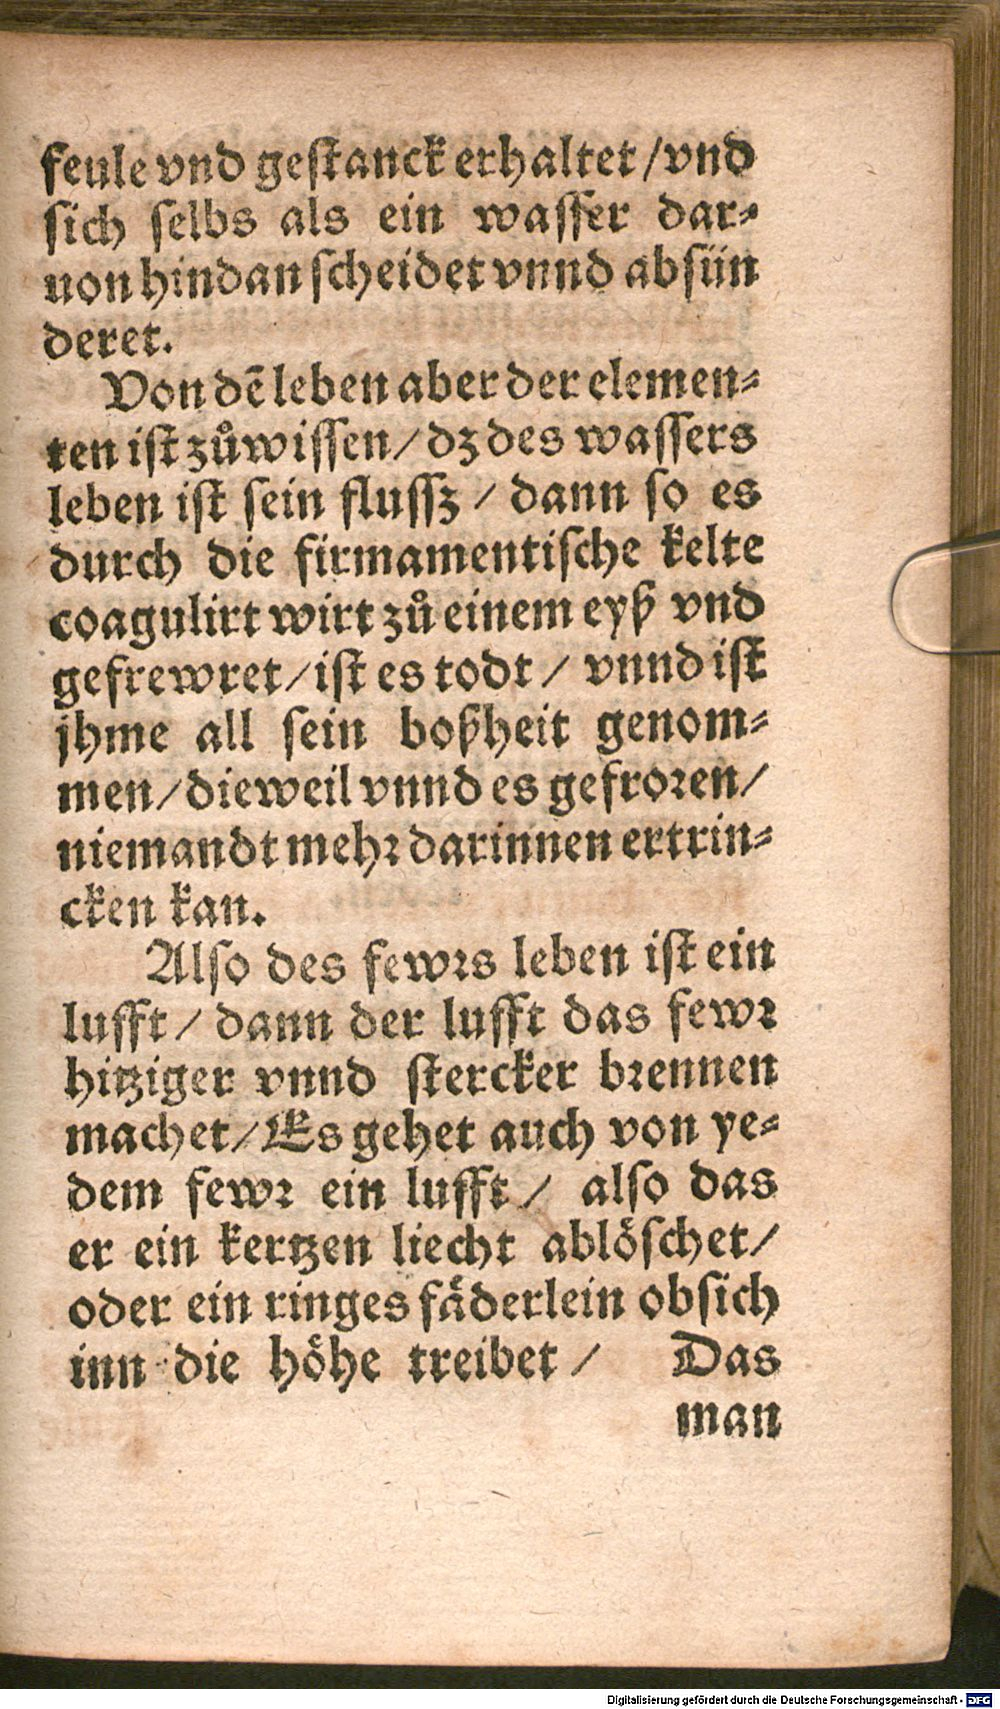 feule vnd gestanck erhaltet / vnd
sich selbs als ein wasser dar⸗
uon hindan scheidet vnnd absün
deret.
Von dē leben aber der elemen⸗
ten ist zůwissen / dz des wassers
leben ist sein flussz / dann so es
durch die firmamentische kelte
coagulirt wirt zů einem eyß vnd
gefrewret / ist es todt / vnnd ist
jhme all sein boßheit genom⸗
men / dieweil vnnd es gefroren /
niemandt mehr darinnen ertrin⸗
cken kan.
Also des fewrs leben ist ein
lufft / dann der lufft das fewr
hitziger vnnd stercker brennen
machet / Es gehet auch von ye⸗
dem fewr ein lufft / also das
er ein kertzen liecht ablöschet /
oder ein ringes fäderlein obsich
inn die höhe treibet / Das
man
Digitalisierung gefördert durch die Deutsche Forschungsgemeinschaft - DFG